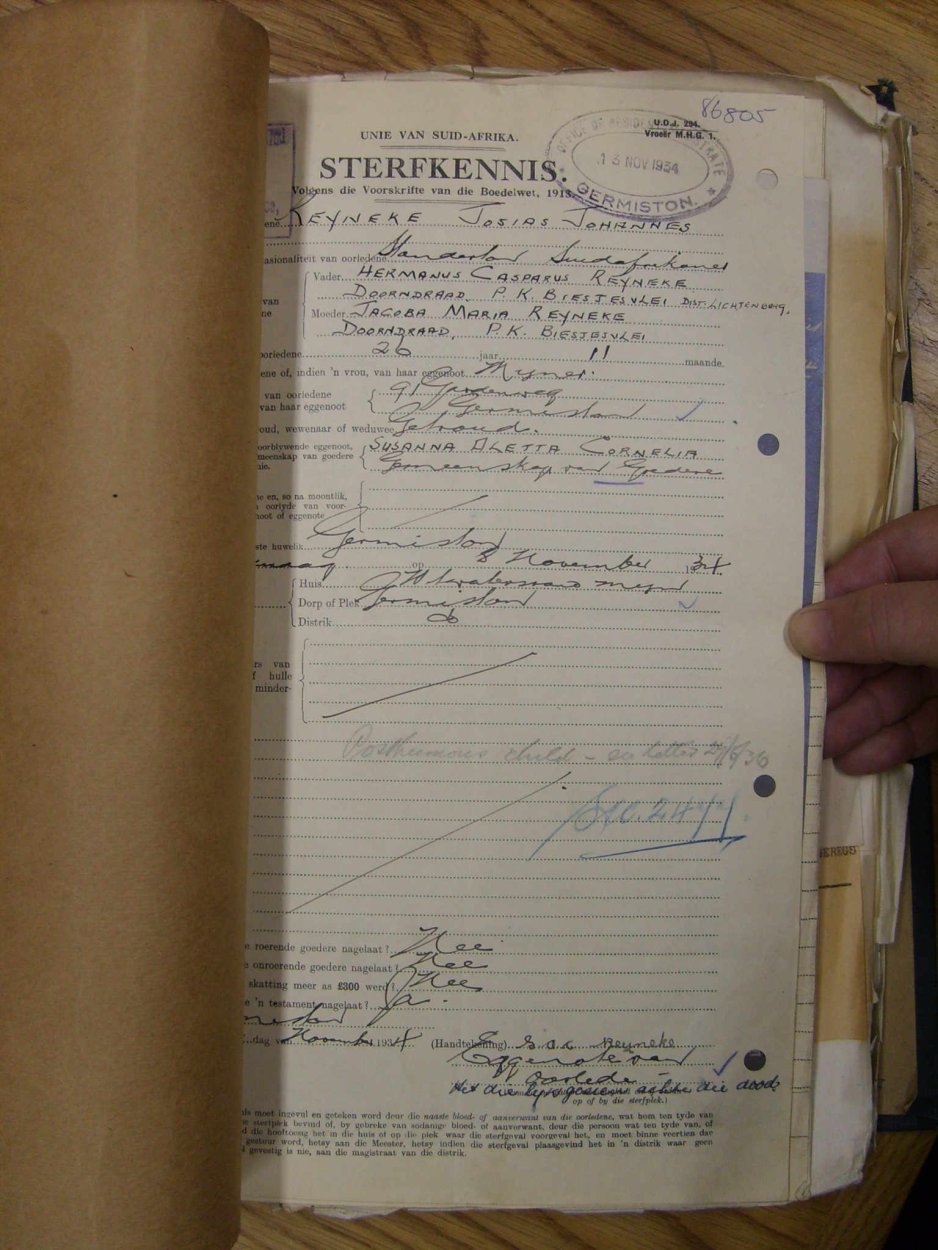 86805
U.D.J. 294.
Vroeër M.H.G. 1.
OFFICE OF RESIDENT MAGISTRATE
13 NOV 1934
GERMISTON.
UNIE VAN SUID-AFRIKA.
STERFKENNIS.
Volgens die Voorskrifte van die Boedelwet, 1913.
REYNEKE JOSIAS JOHANNES
asionaliteit van oorledene Standerton Suidafrikaner
Vader HERMANUS CASPARUS REYNEKE
DOORNDRAAD, P.K. BIESJESVLEI DIST. LICHTENBURG,
Moeder JACOBA MARIA REYNEKE
DOORNDRAAD, P.K. BIESJESVLEI
oorledene 26 jaar 11 maande.
ene of, indien 'n vrou, van haar eggenoot Myner.
van oorledene 91
van haar eggenoot Germiston
oud, wewenaar of weduwee Getroud.
oorblywende eggenoot, SUSANNA ALETTA CORNELIA
meenskap van goedere Gemeenskap van Goedere
nie.
e en, so na moontlik,
oorlyde van voor-
noot of eggenote
ste huwelik Germiston
op 8 November 1934
Huis Witwatersrand Myn
Dorp of Plek Germiston
Distrik do
rs van
f hulle
minder-
Posthumous child - see letter 2 /6/36
2477.
e roerende goedere nagelaat? Nee
e onroerende goedere nagelaat? Nee
skatting meer as £300 werd? Nee
e 'n testament nagelaat? Ja.
dag van November 1934 (Handtekening) S.A.C. Reyneke
Eggenote van
oorlede
Het die lyk gesien achter die dood
op of by die sterfplek.)
is moet ingevul en geteken word deur die naaste bloed- of aanverwant van die oorledene, wat hom ten tyde van
e sterfplek bevind of, by gebreke van sodanige bloed- of aanverwant, deur die persoon wat ten tyde van, of
d die hooftoesig het in die huis of op die plek waar die sterfgeval voorgeval het, en moet binne veertien dae
gestuur word, hetsy aan die Meester, hetsy indien die sterfgeval plaasgevind het in 'n distrik waar geen
gevestig is nie, aan die magistraat van die distrik.